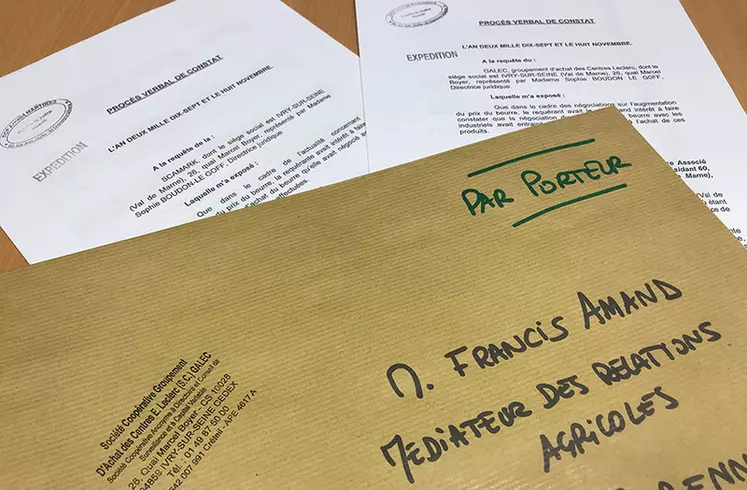 PROCÈS VERBAL DE CONSTAT
EXPEDITION
L'AN DEUX MILLE DIX-SEPT ET LE HUIT NOVEMBRE.
A la requête de :
SCAMARK, dont le siège social est IVRY-SUR-SEINE
(Val de Marne), 26, quai Marcel Boyer, représenté par Madame
Sophie BOUDON-LE GOFF, Directrice juridique
Laquelle m'a exposé :
Que dans le cadre de l'actualité concernant
du prix du beurre, la requérante avait intérêt à faire
d'achat du beurre qu'elle avait négocié
PROCÈS VERBAL DE CONSTAT
EXPEDITION
L'AN DEUX MILLE DIX-SEPT ET LE HUIT NOVEMBRE.
A la requête de :
GALEC, groupement d'achat des Centres Leclerc, dont le
siège social est IVRY-SUR-SEINE (Val de Marne), 26, quai Marcel
Boyer, représenté par Madame Sophie BOUDON LE GOFF,
Directrice juridique.
Laquelle m'a exposé :
Que dans le cadre des négociations sur l'augmentation
du prix du beurre, le requérant avait intérêt à faire
constater que la négociation menée avec les
industriels avait l'achat de ces
produits.
Associé
60,
PAR PORTEUR
M. FRANCIS AMAND
MEDIATEUR DES RELATIONS
AGRICOLES
Société Coopérative Groupement
D'Achat des Centres E. Leclerc (S.C.) GALEC
Société Coopérative Anonyme à Directoire et Conseil de
Surveillance et à Capital Variable
26, Quai Marcel Boyer - CS 10028
94859 IVRY-SUR-SEINE CEDEX
Tél. : 01 49 87 50 00
642 007 991 Créteil - APE 4617A